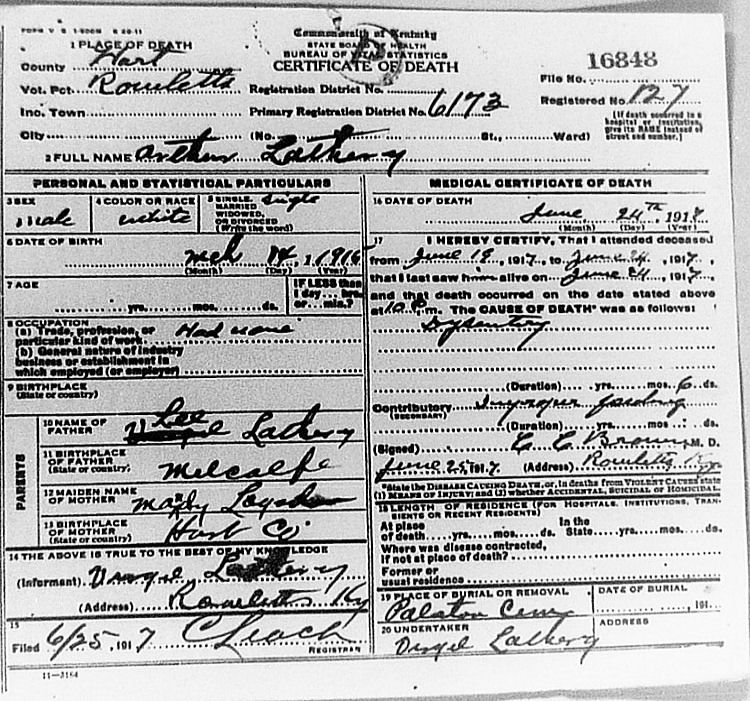 FORM V S 1-500M 8 29-11
Commonwealth of Kentucky
STATE BOARD OF HEALTH
BUREAU OF VITAL STATISTICS
CERTIFICATE OF DEATH
1 PLACE OF DEATH
County Hart
Vot. Pct. Rowletts
Inc. Town
City
Registration District No.
Primary Registration District No. 6173
(No. St., Ward)
16848
File No.
Registered No. 127
[If death occurred in a
hospital or institution,
give its NAME instead of
street and number.]
2 FULL NAME Arthur Lathery
PERSONAL AND STATISTICAL PARTICULARS
3 SEX
male
4 COLOR OR RACE
white
5 SINGLE, Single
MARRIED
WIDOWED,
OR DIVORCED
(Write the word)
6 DATE OF BIRTH
Mch 14, 1916
(Month) (Day) (Year)
7 AGE
yrs. mos. ds.
IF LESS than
1 day... hrs.
or... min.?
8 OCCUPATION
(a) Trade, profession, or
particular kind of work Had none
(b) General nature of industry
business or establishment in
which employed (or employer)
9 BIRTHPLACE
(State or country)
PARENTS
10 NAME OF
FATHER Lee Lathery
11 BIRTHPLACE
OF FATHER
(State or country) Metcalfe
12 MAIDEN NAME
OF MOTHER Mandy
13 BIRTHPLACE
OF MOTHER
(State or country) Hart Co
14 THE ABOVE IS TRUE TO THE BEST OF MY KNOWLEDGE
(Informant) Virgil Lathery
(Address) Rowletts Ky
15
Filed 6/25, 1917 C Leach
REGISTRAR
11-3184
MEDICAL CERTIFICATE OF DEATH
16 DATE OF DEATH
June 24th, 1917
(Month) (Day) (Year)
17 I HEREBY CERTIFY, That I attended deceased
from June 19, 1917, to June 24, 1917,
that I last saw him alive on June 24, 1917,
and that death occurred on the date stated above
at 10 P.m. The CAUSE OF DEATH* was as follows:
Dysentery
(Duration) yrs. mos. 6 ds.
Contributory Improper feeding
(SECONDARY)
(Duration) yrs. mos. ds.
(Signed) C C Brown M. D.
June 25, 1917. (Address) Rowletts Ky
*State the DISEASE CAUSING DEATH, or, in deaths from VIOLENT CAUSES state
(1) MEANS OF INJURY; and (2) whether ACCIDENTAL, SUICIDAL or HOMICIDAL.
18 LENGTH OF RESIDENCE (FOR HOSPITALS, INSTITUTIONS, TRAN-
SIENTS OR RECENT RESIDENTS)
At place In the
of death yrs. mos. ds. State yrs. mos. ds.
Where was disease contracted,
if not at place of death?
Former or
usual residence
19 PLACE OF BURIAL OR REMOVAL
Cem
DATE OF BURIAL
, 191
20 UNDERTAKER
Virgil Lathery
ADDRESS